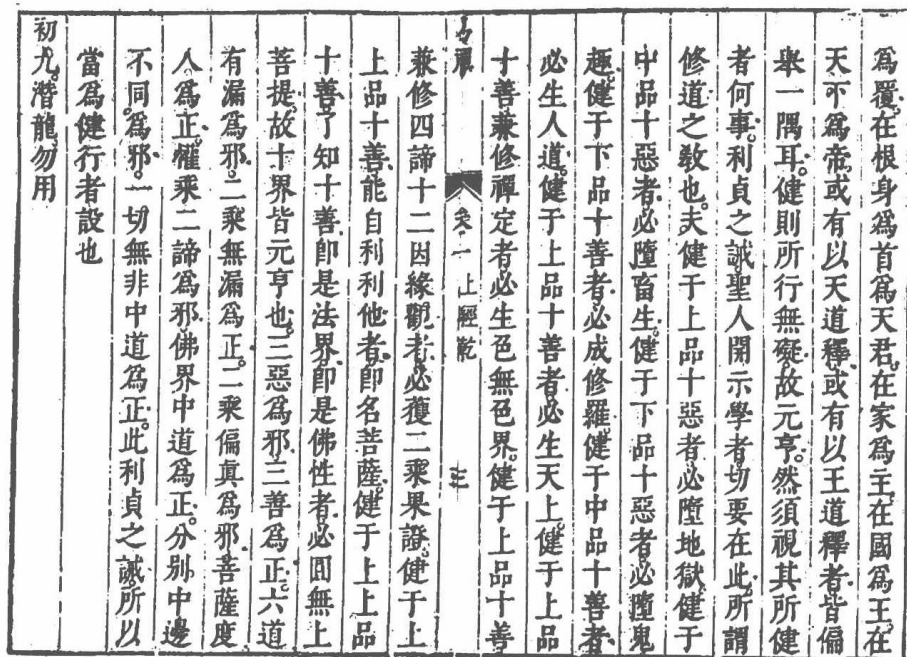 為覆在根身為首為天君在家為主在國為王在
天不為帝或有以天道釋或有以王道釋者皆偏
舉一隅耳健則所行無礙故元亨然須視其所健
者何事利貞之誡聖人開示學者切要在此所謂
修道之教也夫健于上品十惡者必墮地獄健于
中品十惡者必墮畜生健于下品十惡者必墮鬼
趣健于下品十善者必成修羅健于中品十善者
必生人道健于上品十善者必生天上健于上品
十善兼修禪定者必生色無色界健于上品十善
禪 卷一 上經乾 三
兼修四諦十二因緣觀者必獲二乘果證健于上
上品十善能自利利他者即名菩薩健于上上品
十善了知十善即是法界即是佛性者必圓無上
菩提故十界皆元亨也三惡為邪三善為正六道
有漏為邪二乘無漏為正二乘偏真為邪菩薩度
人為正權乘二諦為邪佛界中道為正分別中邊
不同為邪一切無非中道為正此利貞之誡所以
當為健行者設也
初九潛龍勿用